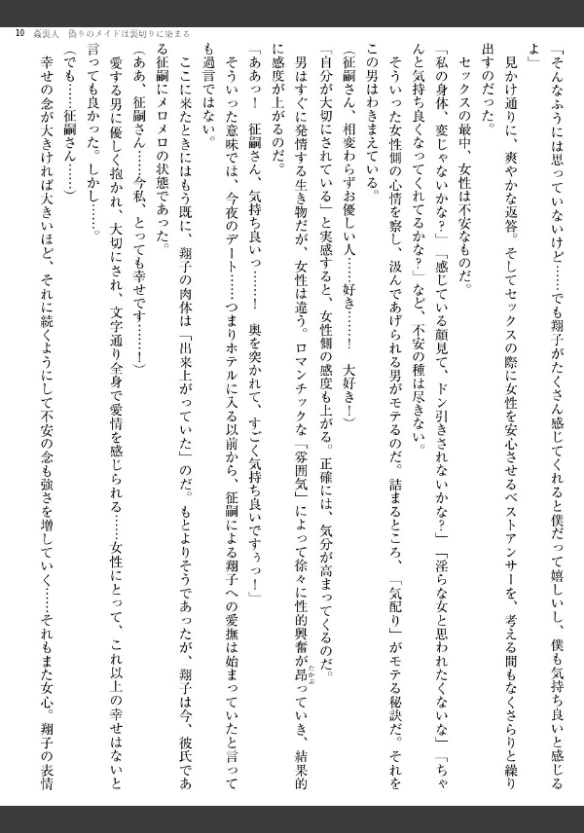 10 姦裏人　偽りのメイドは裏切りに染まる
「そんなふうには思っていないけど……でも翔子がたくさん感じてくれると僕だって嬉しいし、僕も気持ち良いと感じる
よ」
　見かけ通りに、爽やかな返答。そしてセックスの際に女性を安心させるベストアンサーを、考える間もなくさらりと繰り
出すのだった。
　セックスの最中、女性は不安なものだ。
「私の身体、変じゃないかな？」「感じている顔見て、ドン引きされないかな？」「淫らな女と思われたくないな」「ちゃ
んと気持ち良くなってくれてるかな？」など、不安の種は尽きない。
　そういった女性側の心情を察し、汲んであげられる男がモテるのだ。詰まるところ、「気配り」がモテる秘訣だ。それを
この男はわきまえている。
（征嗣さん、相変わらずお優しい人……好き……！　大好き！）
「自分が大切にされている」と実感すると、女性側の感度も上がる。正確には、気分が高まってくるのだ。
　男はすぐに発情する生き物だが、女性は違う。ロマンチックな「雰囲気」によって徐々に性的興奮が昂たかぶっていき、結果的
に感度が上がるのだ。
「ああっ！　征嗣さん、気持ち良いっ……！　奥を突かれて、すごく気持ち良いですぅっ！」
　そういった意味では、今夜のデート……つまりホテルに入る以前から、征嗣による翔子への愛撫は始まっていたと言って
も過言ではない。
　ここに来たときにはもう既に、翔子の肉体は「出来上がっていた」のだ。もとよりそうであったが、翔子は今、彼氏であ
る征嗣にメロメロの状態であった。
（ああ、征嗣さん……今私、とっても幸せです………！）
　愛する男に優しく抱かれ、大切にされ、文字通り全身で愛情を感じられる……女性にとって、これ以上の幸せはないと
言っても良かった。しかし……。
（でも……征嗣さん……）
　幸せの念が大きければ大きいほど、それに続くようにして不安の念も強さを増していく……それもまた女心。翔子の表情